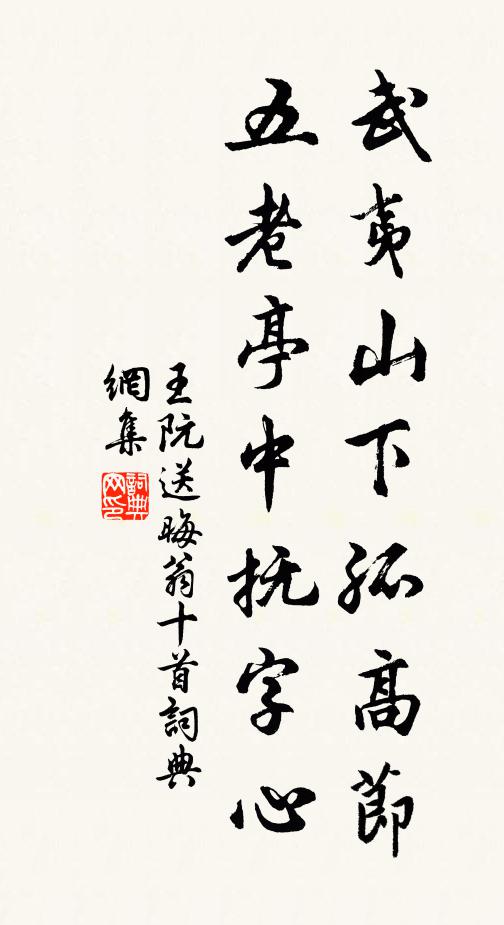 武夷山下孤高節
五老亭中抚字心
王阮送晦翁十首詞典
網集
詞典
网印